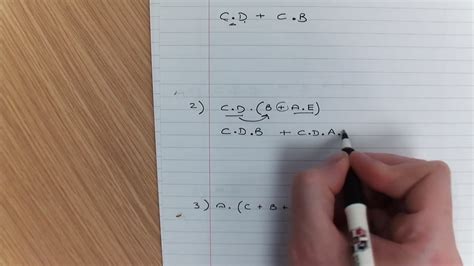 C.D + C.B
2) C.D.(B + A.E)
C.D.B + C.D.A.
3) A.(C + B +